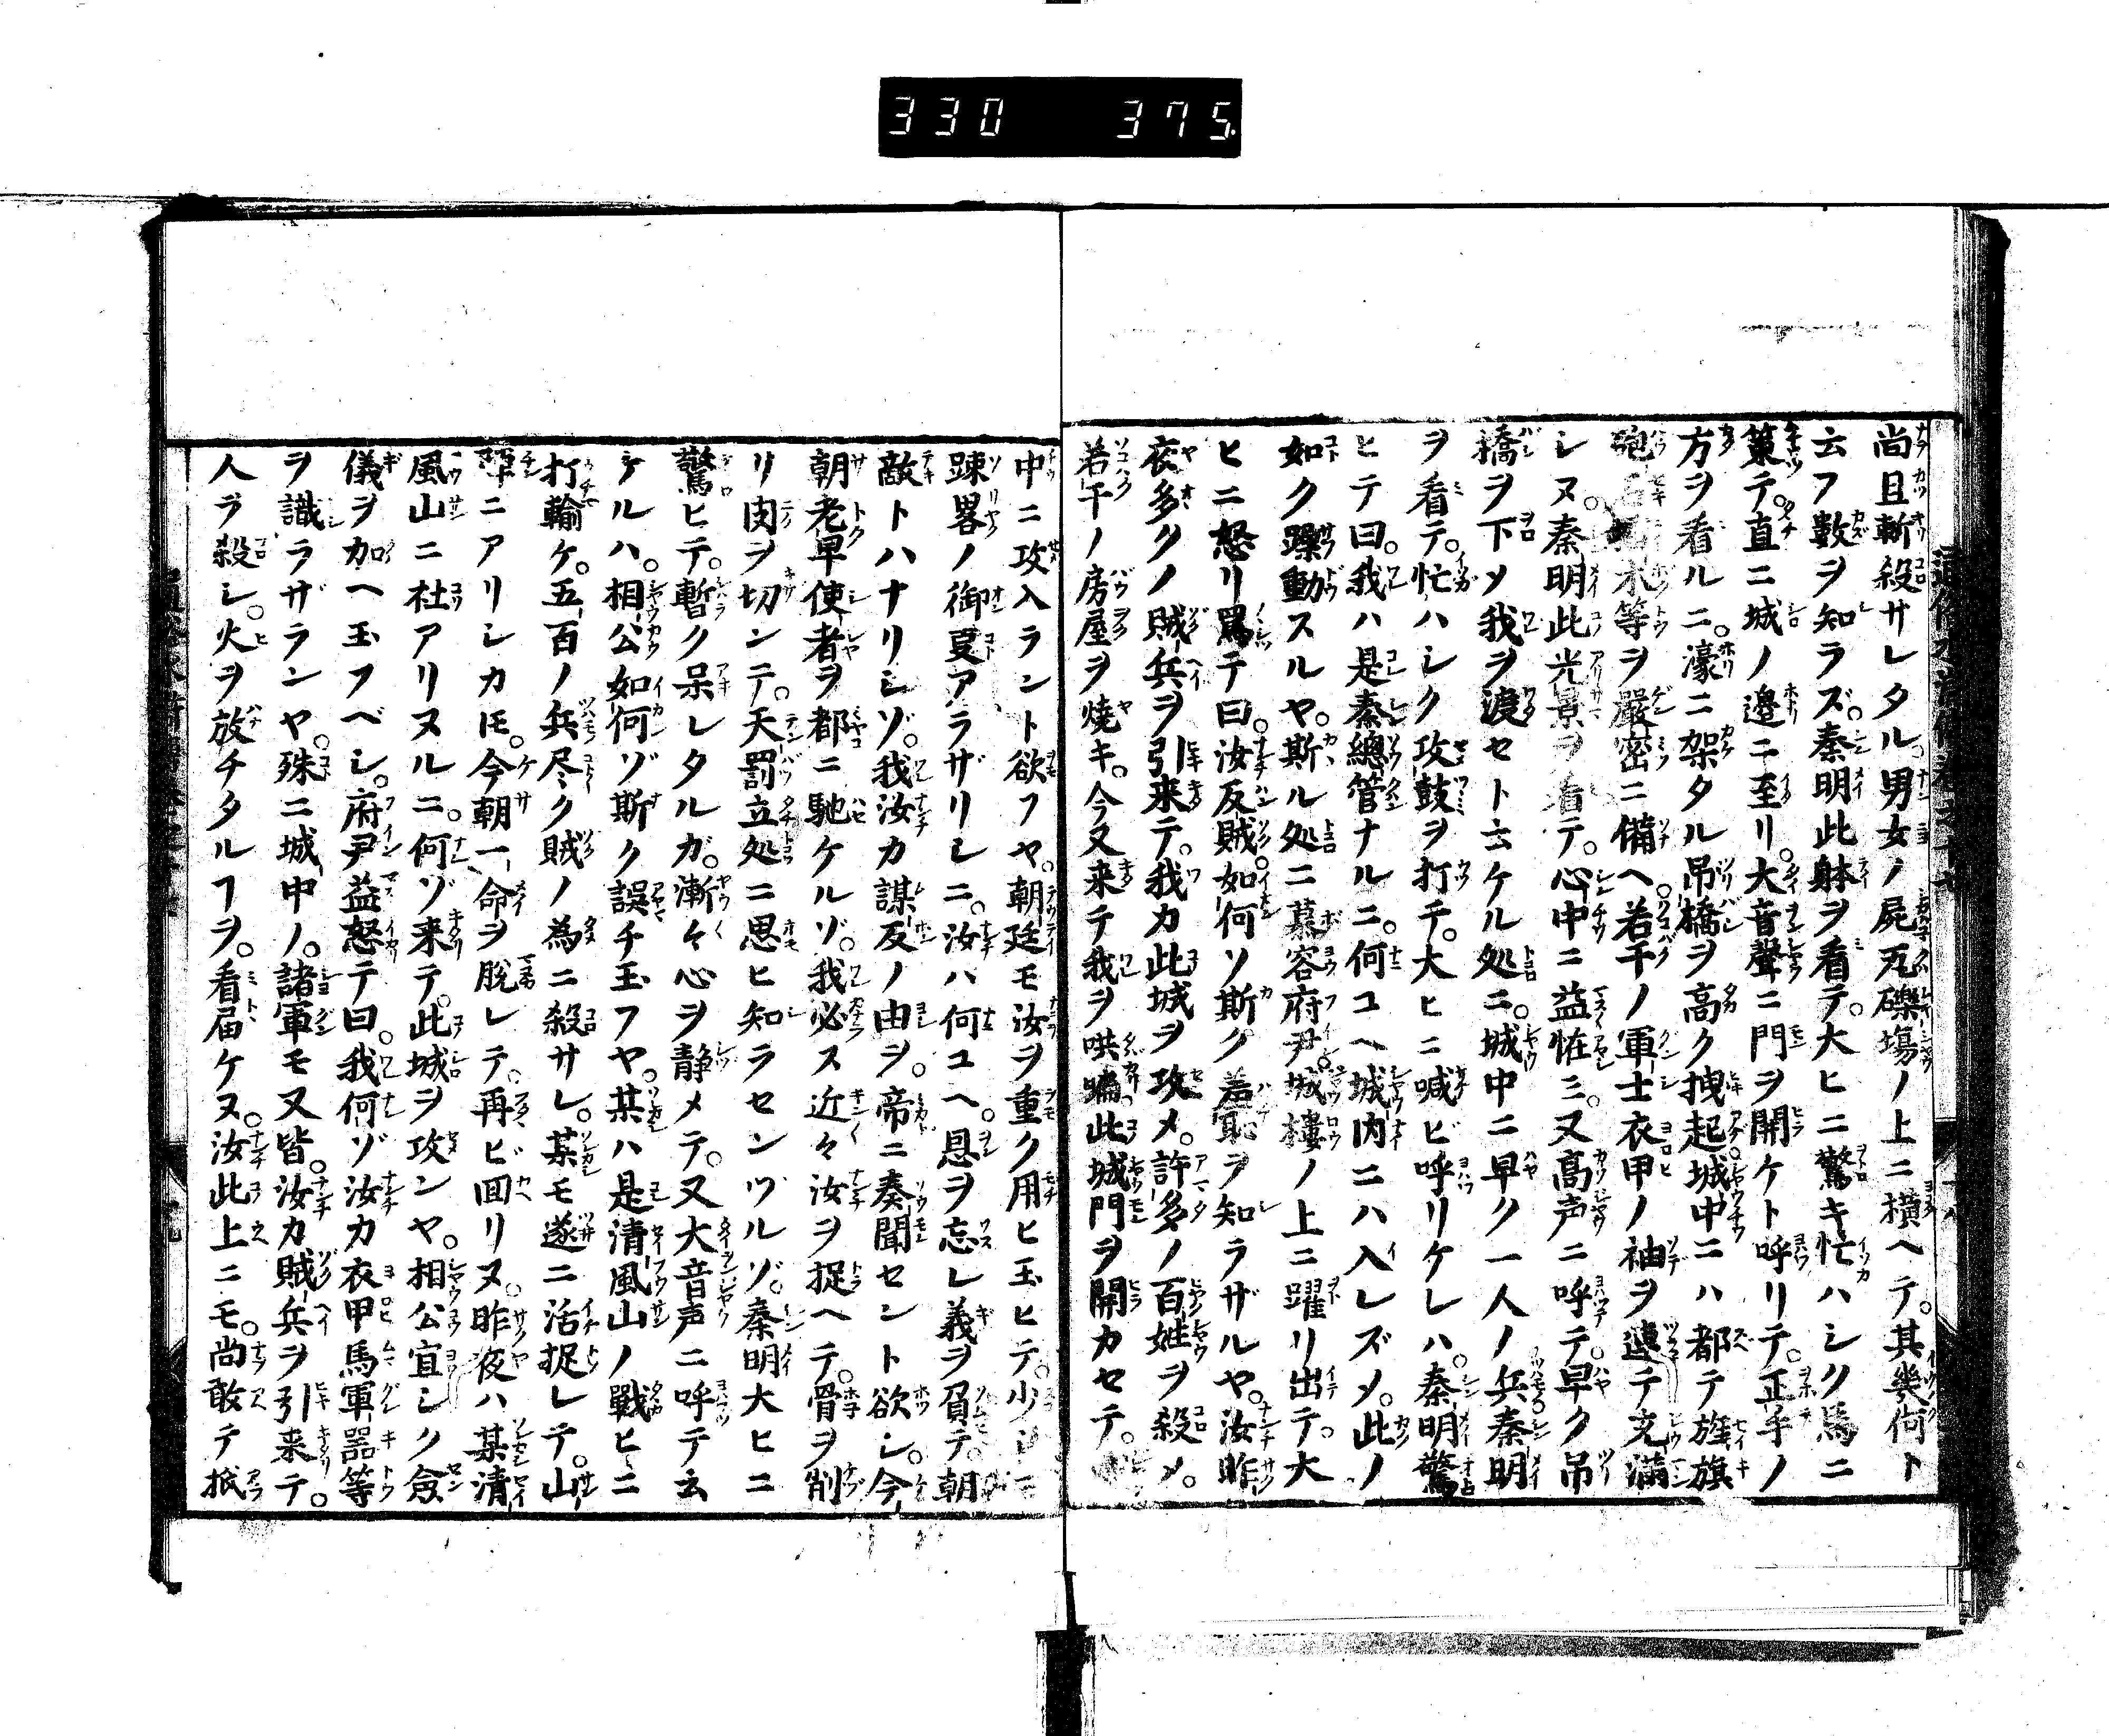 330 375
尚且斬殺サレタル男女ノ屍瓦礫塲ノ上ニ横ヘテ。其幾何ト
云フ數ヲ知ラズ。秦明此躰ヲ看テ。大ヒニ驚キ忙ハシク馬ニ
策テ。直ニ城ノ邉ニ至リ。大音聲ニ門ヲ開ケト呼リテ。正手ノ
方ヲ看ルニ。濠ニ架タル吊橋ヲ高ク拽起。城中ニハ都テ旌旗
砲石 木等ヲ嚴密ニ備ヘ。若干ノ軍士衣甲ノ袖ヲ連テ充滿
シヌ。秦明此光景ヲ看テ。心中ニ益怪ミ。又高声ニ呼テ。早ク吊
橋ヲ下シメ我ヲ渡セト云ケル処ニ。城中ニ早ク一人ノ兵秦明
ヲ看テ。忙ハシク攻鼓ヲ打チ。大ヒニ喊ビ呼リケレハ。秦明驚
ヒテ曰。我ハ是秦總管ナルニ。何ユヘ城内ニハ入レズメ。此ノ
如ク躁動スルヤ。斯ル処ニ慕容府尹。城樓ノ上ニ躍リ出テ。大
ヒニ怒リ罵テ曰。汝反賊。如何ソ斯ク羞恥ヲ知ラザルヤ。汝昨
夜多クノ賊兵ヲ引来テ。我カ此城ヲ攻メ。許多ノ百姓ヲ殺メ。
若干ノ房屋ヲ焼キ。今又来テ我ヲ哄騙。此城門ヲ開カセテ。
中ニ攻入ラント欲フヤ。朝廷モ汝ヲ重ク用ヒ玉ヒテ。少シモ
踈畧ノ御叓アラザリシニ。汝ハ何ユヘ。恩ヲ忘レ義ヲ負テ。朝
敵トハナリシゾ。我汝カ謀反ノ由ヲ。帝ニ奏聞セント欲シ。今
朝老早使者ヲ都ニ馳ケルゾ。我必ス近々汝ヲ捉ヘテ。骨ヲ削
リ肉ヲ切ンテ。天罰立処ニ思ヒ知ラセンヅルゾ。秦明大ヒニ
驚ヒテ。暫ク呆レタルガ。漸々心ヲ静メテ。又大音声ニ呼テ云
ケルハ。相公如何ゾ斯ク誤チ玉フヤ。某ハ是清風山ノ戰ヒニ
打輸ケ。五百ノ兵尽ク賊ノ為ニ殺サレ。某モ遂ニ活捉レテ。山
陣ニアリシカ𪜈。今朝一命ヲ脱レテ。再ビ回リヌ。昨夜ハ某清
風山ニ社アリヌルニ。何ゾ来テ。此城ヲ攻ンヤ。相公宜シク僉
儀ヲ加ヘ玉フベシ。府尹益怒テ曰。我何ゾ汝カ衣甲馬軍噐等
ヲ識ラザランヤ。殊ニ城中ノ。諸軍モ又皆。汝カ賊兵ヲ引来テ。
人ヲ殺シ。火ヲ放チタルヿヲ。看届ケヌ。汝此上ニモ。尚敢テ抵